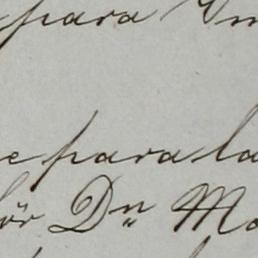 para
e para la
ör Dn Mo